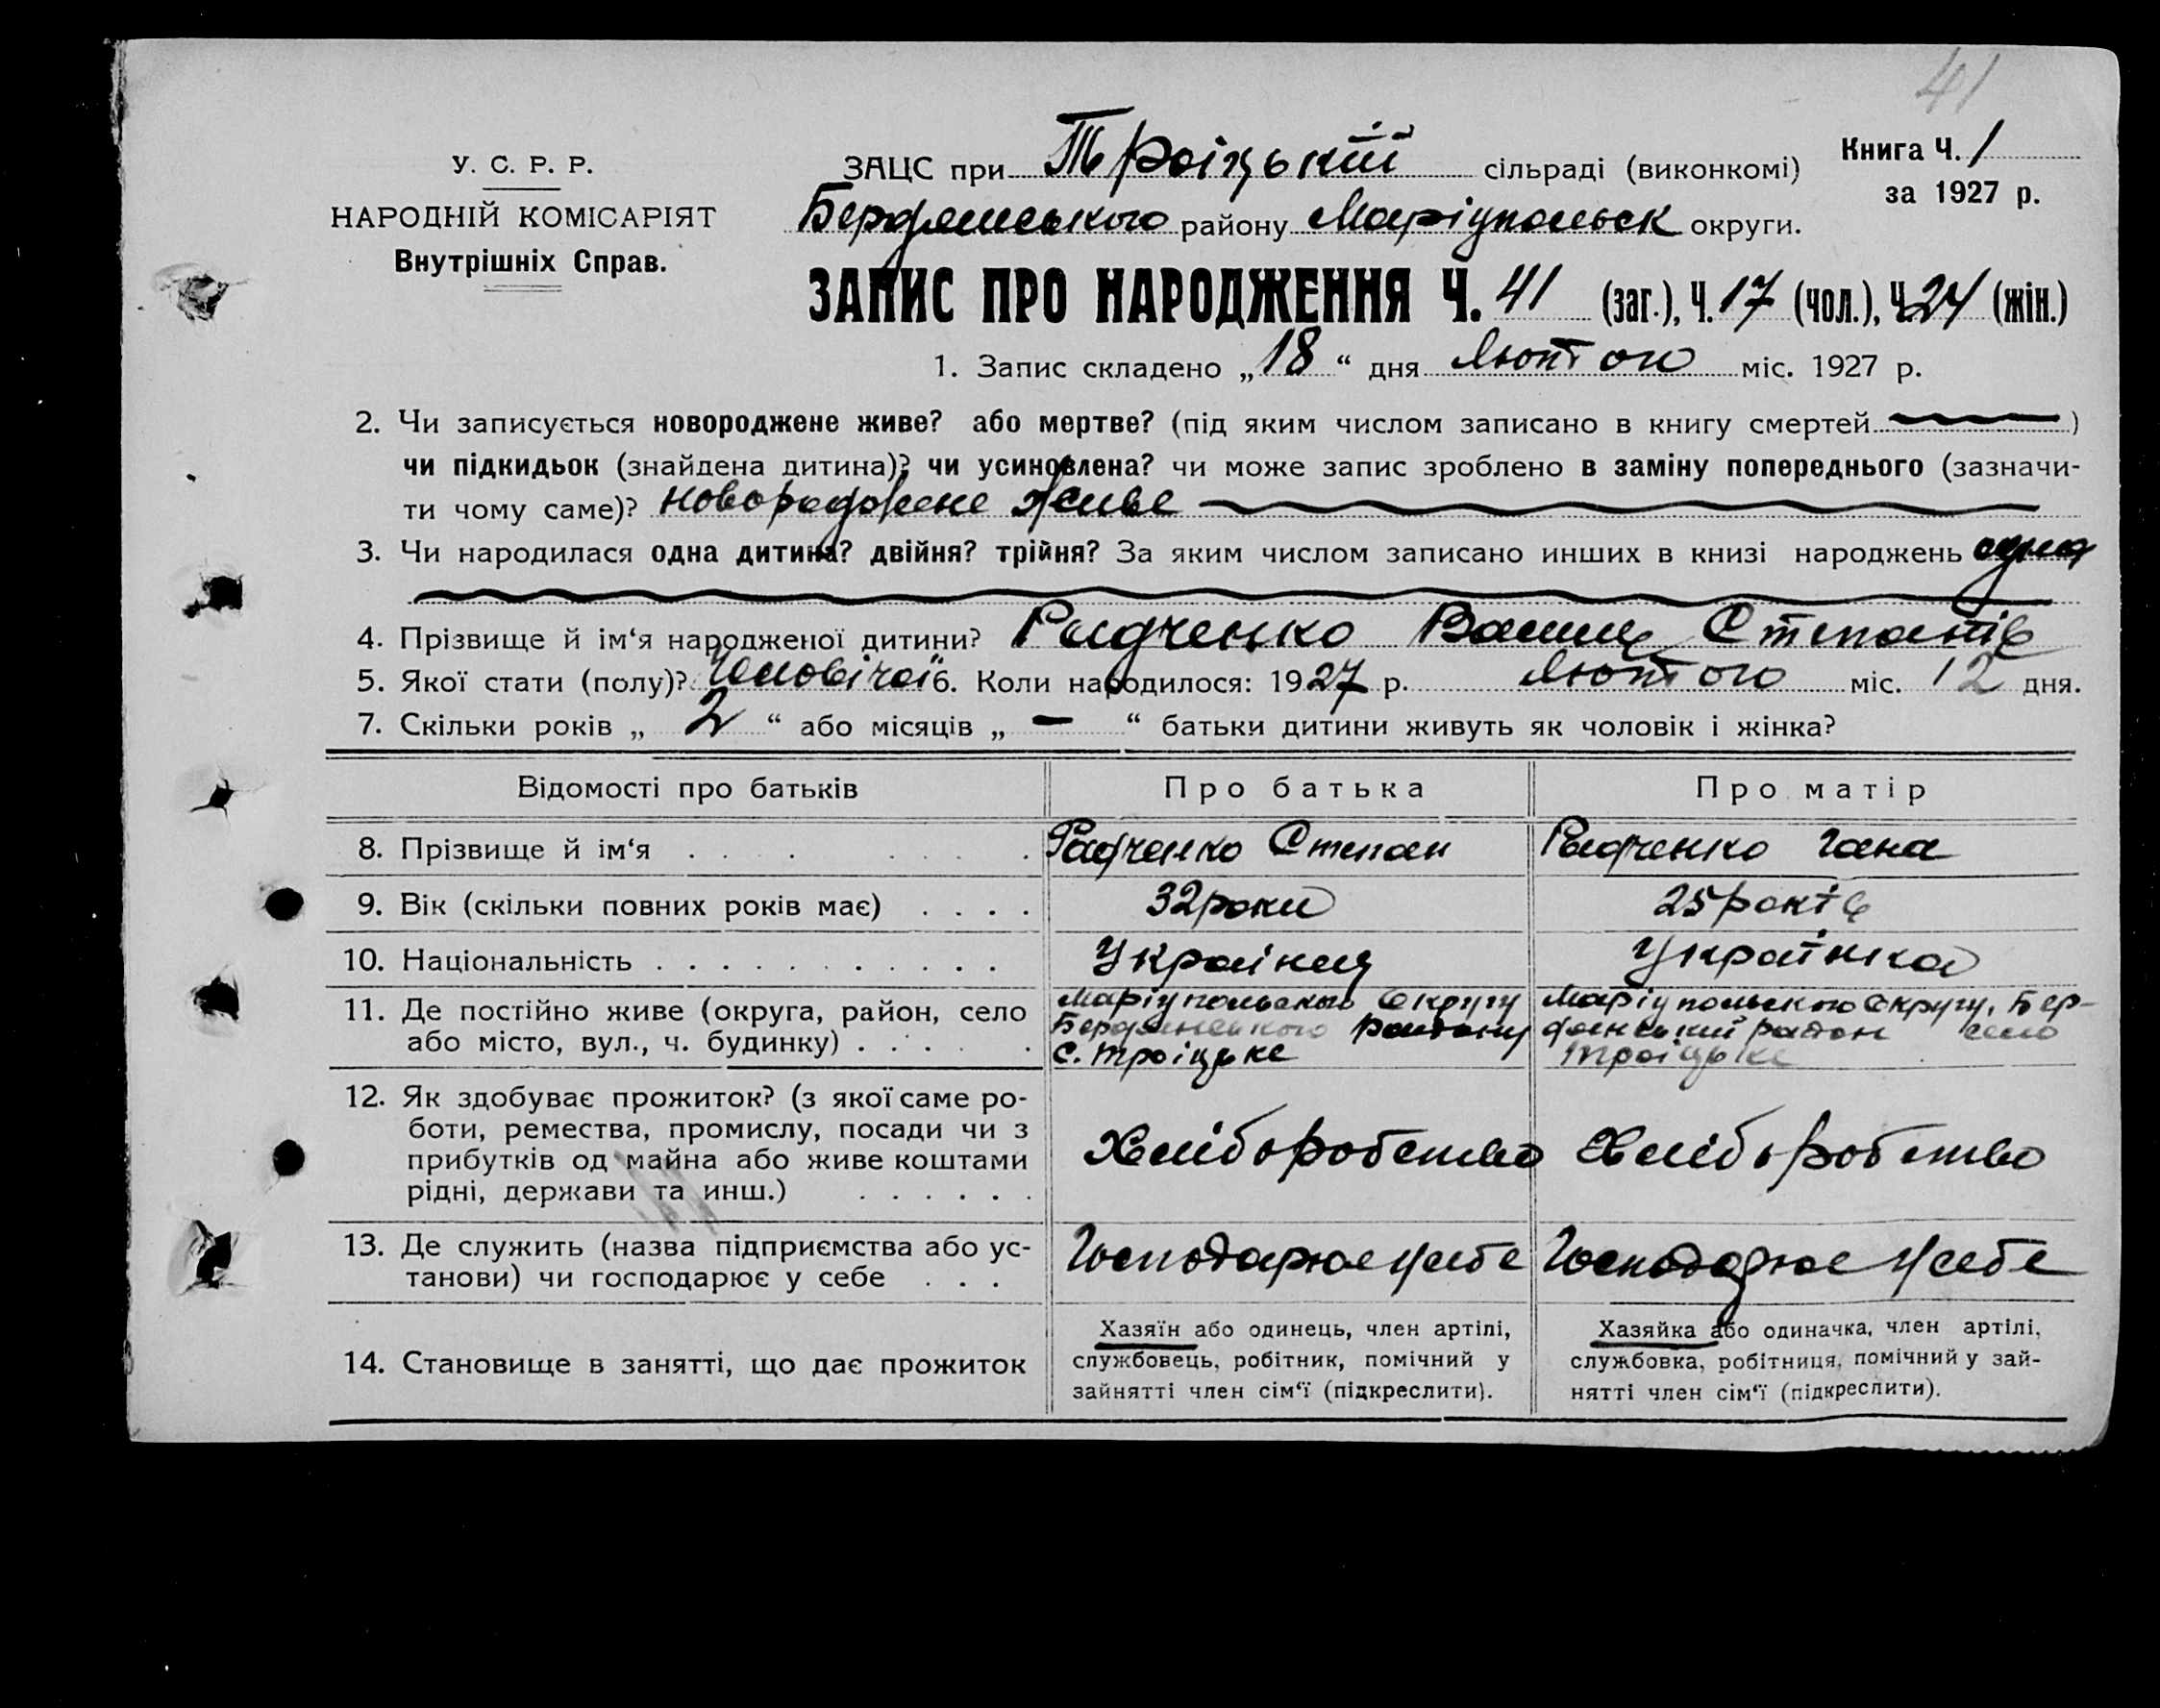 41
У. С. Р. Р.
НАРОДНІЙ КОМІСАРІЯТ
Внутрішніх Справ.
ЗАЦС при Троіцькій сільраді (виконкомі)
Бердянського району Маріупольськ округи.
Книга Ч. 1
за 1927 р.
ЗАПИС ПРО НАРОДЖЕННЯ Ч. 41 (заг.), Ч. 17 (чол.), Ч. 24 (жін.)
1. Запис складено „18“ дня Лютого міс. 1927 р.
2. Чи записується новороджене живе? або мертве? (під яким числом записано в книгу смертей )
чи підкидьок (знайдена дитина)? чи усиновлена? чи може запис зроблено в заміну попереднього (зазначи-
ти чому саме)? новороджене живе
3. Чи народилася одна дитина? двійня? трійня? За яким числом записано инших в книзі народжень одна
4. Прізвище й ім‘я народженої дитини? Радченко Степанів
5. Якої стати (полу)? Чоловічої 6. Коли народилося: 1927 р. Лютого міс. 12 дня.
7. Скільки років „ 2 “ або місяців „ — “ батьки дитини живуть як чоловік і жінка?
Відомості про батьків Про батька Про матір
8. Прізвище й ім‘я Радченко Степан Радченко Гана
9. Вік (скільки повних років має) 32 роки 25 років
10. Національність Украінец Украінка
11. Де постійно живе (округа, район, село
або місто, вул., ч. будинку)
Маріупольського Округу
Бердянського району
с. Троіцьке
Маріупольского Округу, Бер-
дянський район село
Троіцьке
12. Як здобуває прожиток? (з якої саме ро-
боти, ремества, промислу, посади чи з
прибутків од майна або живе коштами
рідні, держави та инш.)
Хліборобство Хліборобство
13. Де служить (назва підприємства або ус-
танови) чи господарює у себе
Господарює у себе Господарює у себе
14. Становище в занятті, що дає прожиток
Хазяїн або одинець, член артілі,
службовець, робітник, помічний у
зайнятті член сім‘ї (підкреслити).
Хазяйка або одиначка, член артілі,
службовка, робітниця, помічний у зай-
нятті член сім‘ї (підкреслити).